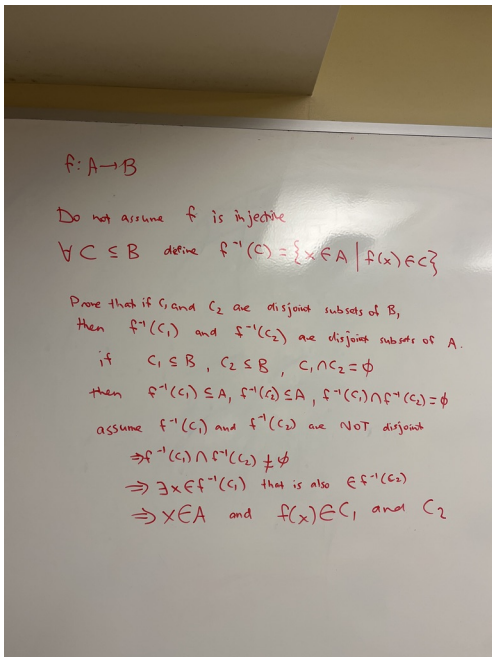 f: A→B
Do not assume f is injective
∀ C ⊆ B define f⁻¹(C) = {x ∈ A | f(x) ∈ C}
Prove that if C₁ and C₂ are disjoint subsets of B,
then f⁻¹(C₁) and f⁻¹(C₂) are disjoint subsets of A.
if C₁ ⊆ B, C₂ ⊆ B, C₁ ∩ C₂ = ϕ
then f⁻¹(C₁) ⊆ A, f⁻¹(C₂) ⊆ A, f⁻¹(C₁) ∩ f⁻¹(C₂) = ϕ
assume f⁻¹(C₁) and f⁻¹(C₂) are NOT disjoint
⇒ f⁻¹(C₁) ∩ f⁻¹(C₂) ≠ ϕ
⇒ ∃ x ∈ f⁻¹(C₁) that is also ∈ f⁻¹(C₂)
⇒ x ∈ A and f(x) ∈ C₁ and C₂